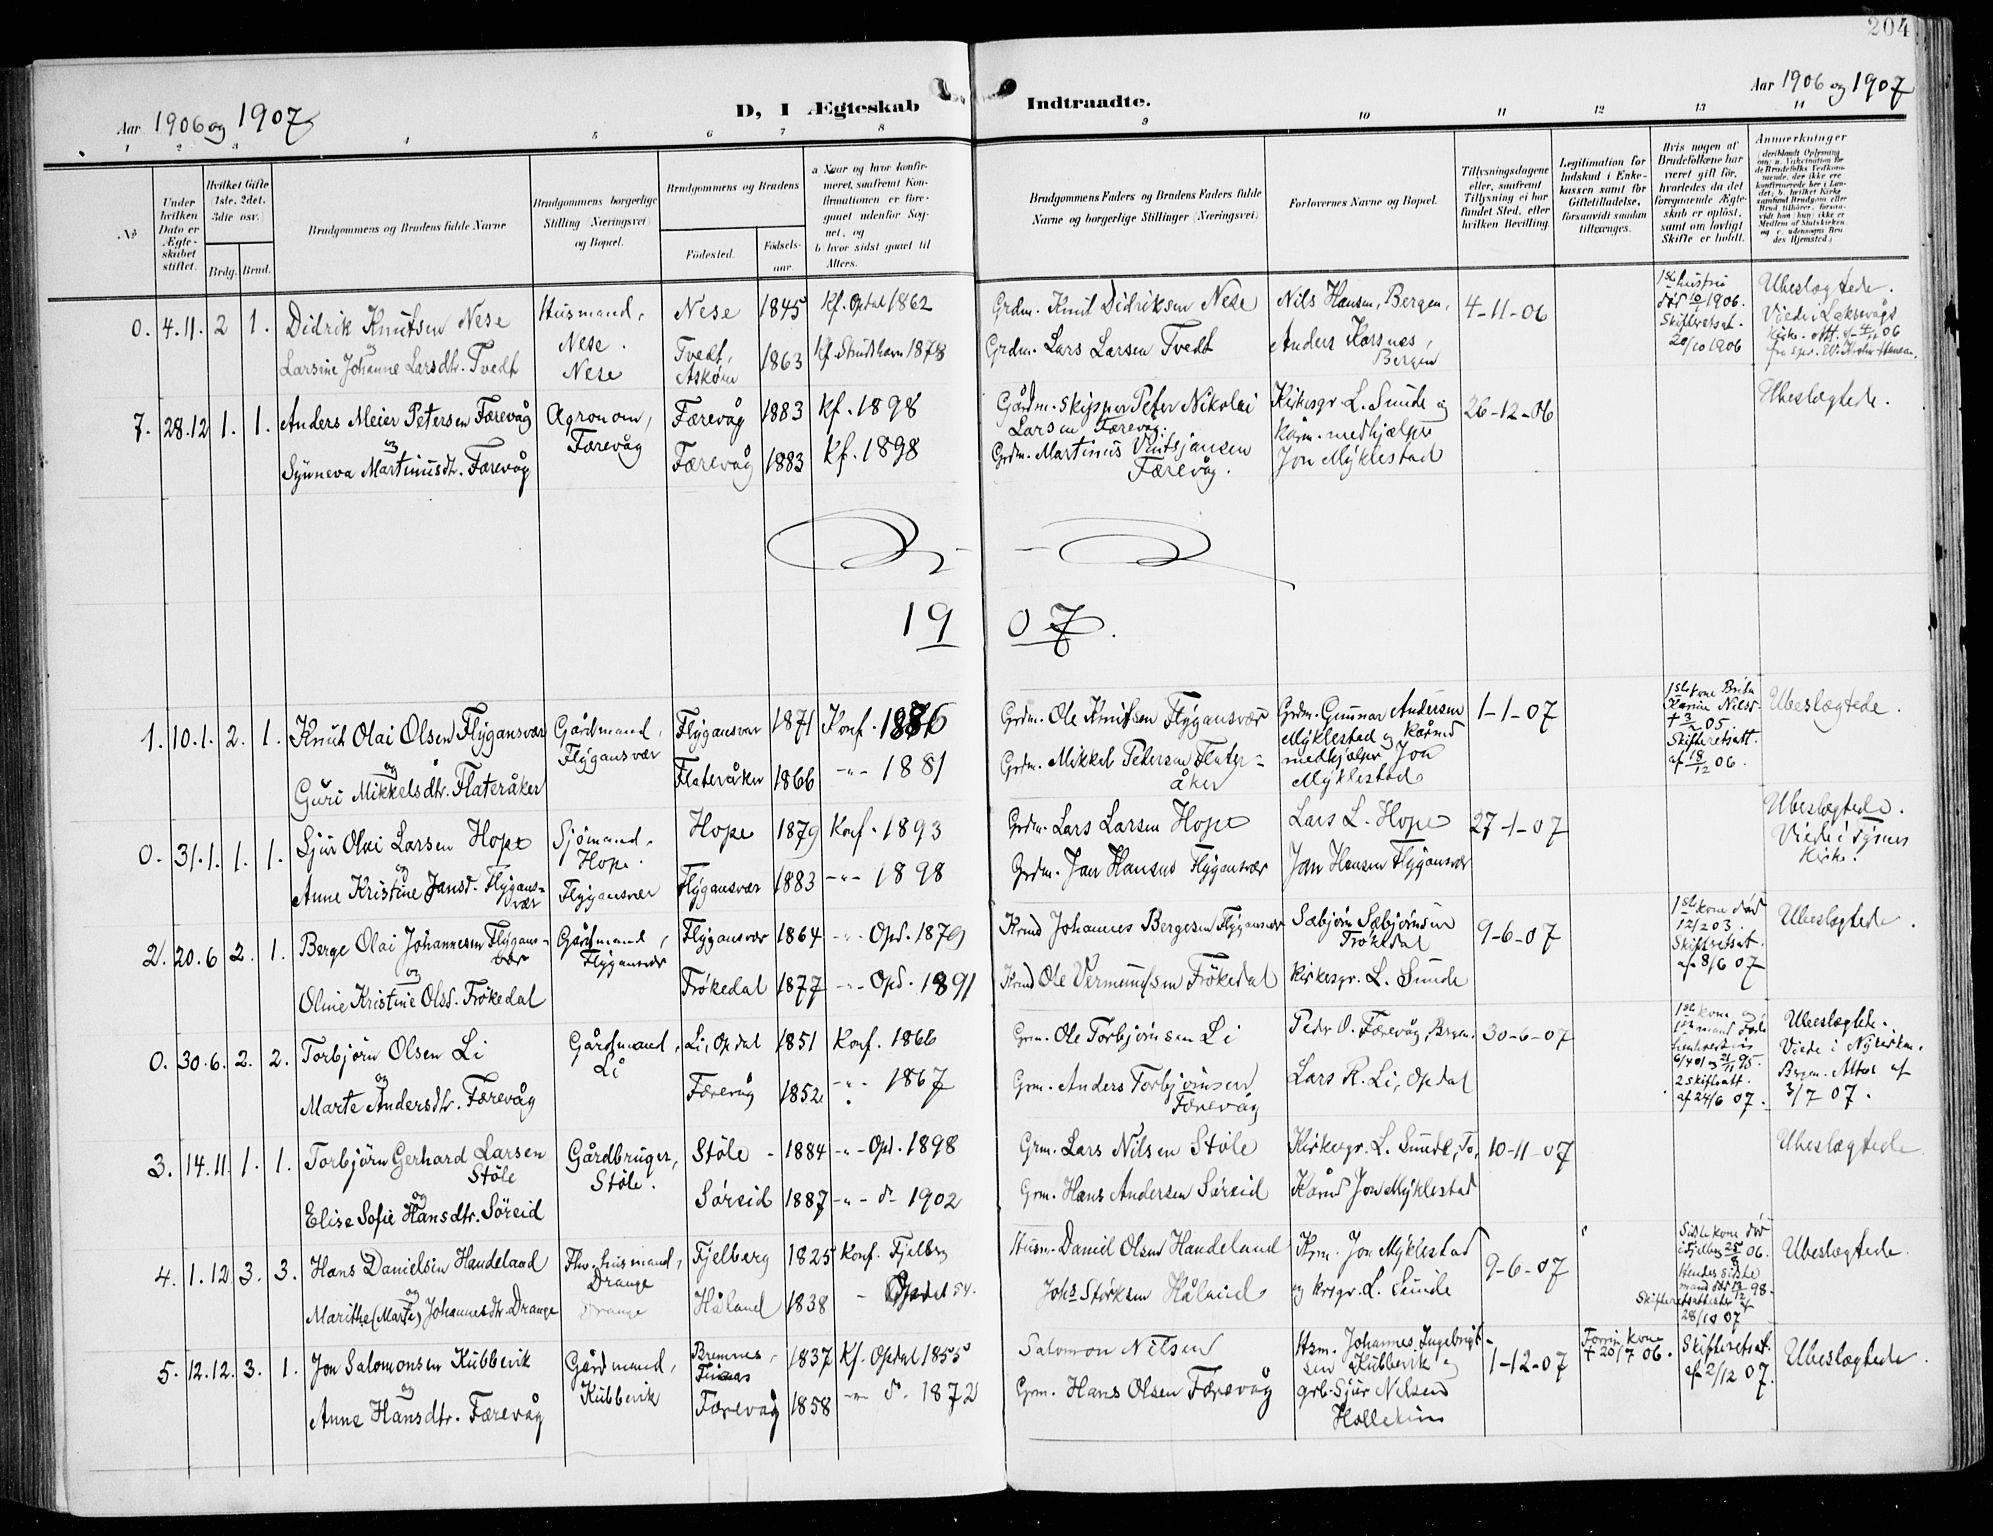 204
Aar 1906 og 1907
D, I Ægteskab Indtraadte.
Aar 1906 og 1907
1 2 3 4 5 6 7 8 9 10 11 12 13 14
No
Under hvilken Dato er Ægteskabet stiftet.
Hvilket Gifte 1ste. 2det. 3die osv.
Brdg. Brud.
Brudgommens og Brudens fulde Navne
Brudgommens borgerlige Stilling (Næringsvei) og Bopæl.
Brudgommens og Brudens
Fødested. Fødselsaar.
a. Naar og hvor konfirmeret, saafremt Konfirmationen er foregaaet udenfor Sognet, og
b. hvor sidst gaaet til Alters.
Brudgommens Faders og Brudens Faders fulde Navne og borgerlige Stillinger (Næringsvei)
Forlovernes Navne og Bopæl.
Tillysningsdagene eller, saafremt Tillysning ei har fundet Sted, efter hvilken Bevilling.
Legitimation for Indskud i Enkekassen samt for Giftetilladelse, forsaavidt saadan tiltrænges.
Hvis nogen af Brudefolkene har været gift før, hvorledes da det foregaaende Ægteskab er opløst, samt om lovligt Skifte er holdt.
Anmerkninger
0. 4.11. 2 1. Didrik Knutsen Nese Husmand, Nese 1845 Kf. Opdal 1862 Grdm. Knut Didriksen Nese Nils Hansen, Bergen, 4-11-06 1ste hustru død 10/1 1906. Ubeslægtede.
og Nese. Skifteretsat. Viede i Laksevågs
Larsine Johanne Larsdtr. Tvedt Nese Tvedt, Askøen 1863 Kf. Strudshavn 1878 Grdm. Lars Larsen Tvedt Anders Korsnes, Bergen 20/10 1906 Kirke.
7. 28.12 1. 1. Anders Meier Petersen Færevåg Agronom, Færevåg 1883 Kf. 1898 Gårdm. Skipper Peter Nikolai Kirkesgr. L. Sunde og 26-12-06 Ubeslægtede.
og Færevåg Larsen Færevåg. medhjælper
Synneva Martinusdtr. Færevåg Færevåg 1883 Kf. 1898 Grdm. Martinus Jon Myklestad
Færevåg.
19 07.
1. 10.1. 2. 1. Knut Olai Olsen Flygansvær Gårdmand, Flygansvær 1871 Konf. 1886 Grdm. Ole Knutsen Flygansvær Grdm. Gunnar Andersen 1-1-07 1ste kone Brita Ubeslægtede.
og Flygansvær Myklestad og Karine Nilsd.
Guri Mikkelsdtr. Flateråker Flateråker 1866 -"- 1881 Grdm. Mikkel Petersen Flater- medhjælper Jon † 3/2 05. Skifteretsatt.
åker Myklestad af 18/12 06.
0. 31.1. 1. 1. Sjur Olai Larsen Hope Sjømand, Hope 1879 Konf. 1893 Grdm. Lars Larsen Hope Lars L. Hope 27-1-07 Ubeslægtede.
og Hope. Viede i Tysnes
Anne Kristine Jansd. Flygansvær Flygansvær Flygansvær 1883 -"- 1898 Grdm. Jan Hansen Flygansvær Jan Hansen Flygansvær Kirke.
2. 20.6 2. 1. Berge Olai Johannesen Flygansvær Gårdmand, Flygansvær 1864 -"- Opd. 1879 Johannes Bergesen Flygansvær Sæbjørn Sæbjørnsen 9-6-07 1ste kone død Ubeslægtede.
og Flygansvær Frøkedal 12/2 03. Skifteretsat.
Oline Kristine Olsd. Frøkedal Frøkedal 1877 -"- Opd. 1891 Ole Vermundsen Frøkedal Kirkesgr. L. Sunde af 8/6 07
0. 30.6. 2. 2. Torbjørn Olsen Li Gårdmand, Li, Opdal 1851 Konf. 1866 Grm. Ole Torbjørnsen Li Peder O. Færevåg, Bergen. 30-6-07 1ste kone og Ubeslægtede.
og Li 1ste mand døde Viede i Nykirken.
Marte Andersdtr. Færevåg Færevåg 1852 -"- 1867 Grm. Anders Torbjørnsen Lars R. Li, Opdal 2 skiftsatt. Brgn. Attest af
Færevåg af 24/6 07. 3/7 07.
3. 14.11. 1. 1. Torbjørn Gerhard Larsen Støle Gårdbruger, Støle 1884 -"- Opd. 1898 Grm. Lars Nilsen Støle Kirkesgr. L. Sunde, To, 10-11-07 Ubeslægtede.
og Støle.
Elise Sofie Hansdtr. Søreid Søreid 1887 -"- do 1902 Grm. Hans Andersen Søreid Jon Myklestad
4. 1.12 3. 3. Hans Danielsen Handeland Fhv. husmand, Fjelberg 1825 Konf. Fjelberg Husm. Daniel Olsen Handeland Jon Myklestad 9-6-07 Sidste kone død Ubeslægtede.
og Drange i Fjelberg 25/9 06.
Marithe (Marte) Johannesdtr. Drange Drange Håland 1838 Opdal 54. Johs Størksen Håland og krsgr. L. Sunde Hendes sidste mand død 13/12 98.
Skifteretsattester af 28/10 07
5. 12.12. 3. 1. Jon Salomonsen Kubbervik Gårdmand, Bremnes, Finaas 1837 Kf. Opdal 1855 Salomon Nilsen Hsm. Johannes Ingebrigt- 1-12-07 Forrige kone Skifteretsat. Ubeslægtede.
og Kubbervik sen Kubbervik og † 20/7 06. af 2/12 07.
Anne Hansdtr. Færevåg Færevåg 1858 -"- do. 1872 Grm. Hans Olsen Færevåg grb. Sjur Nilsen